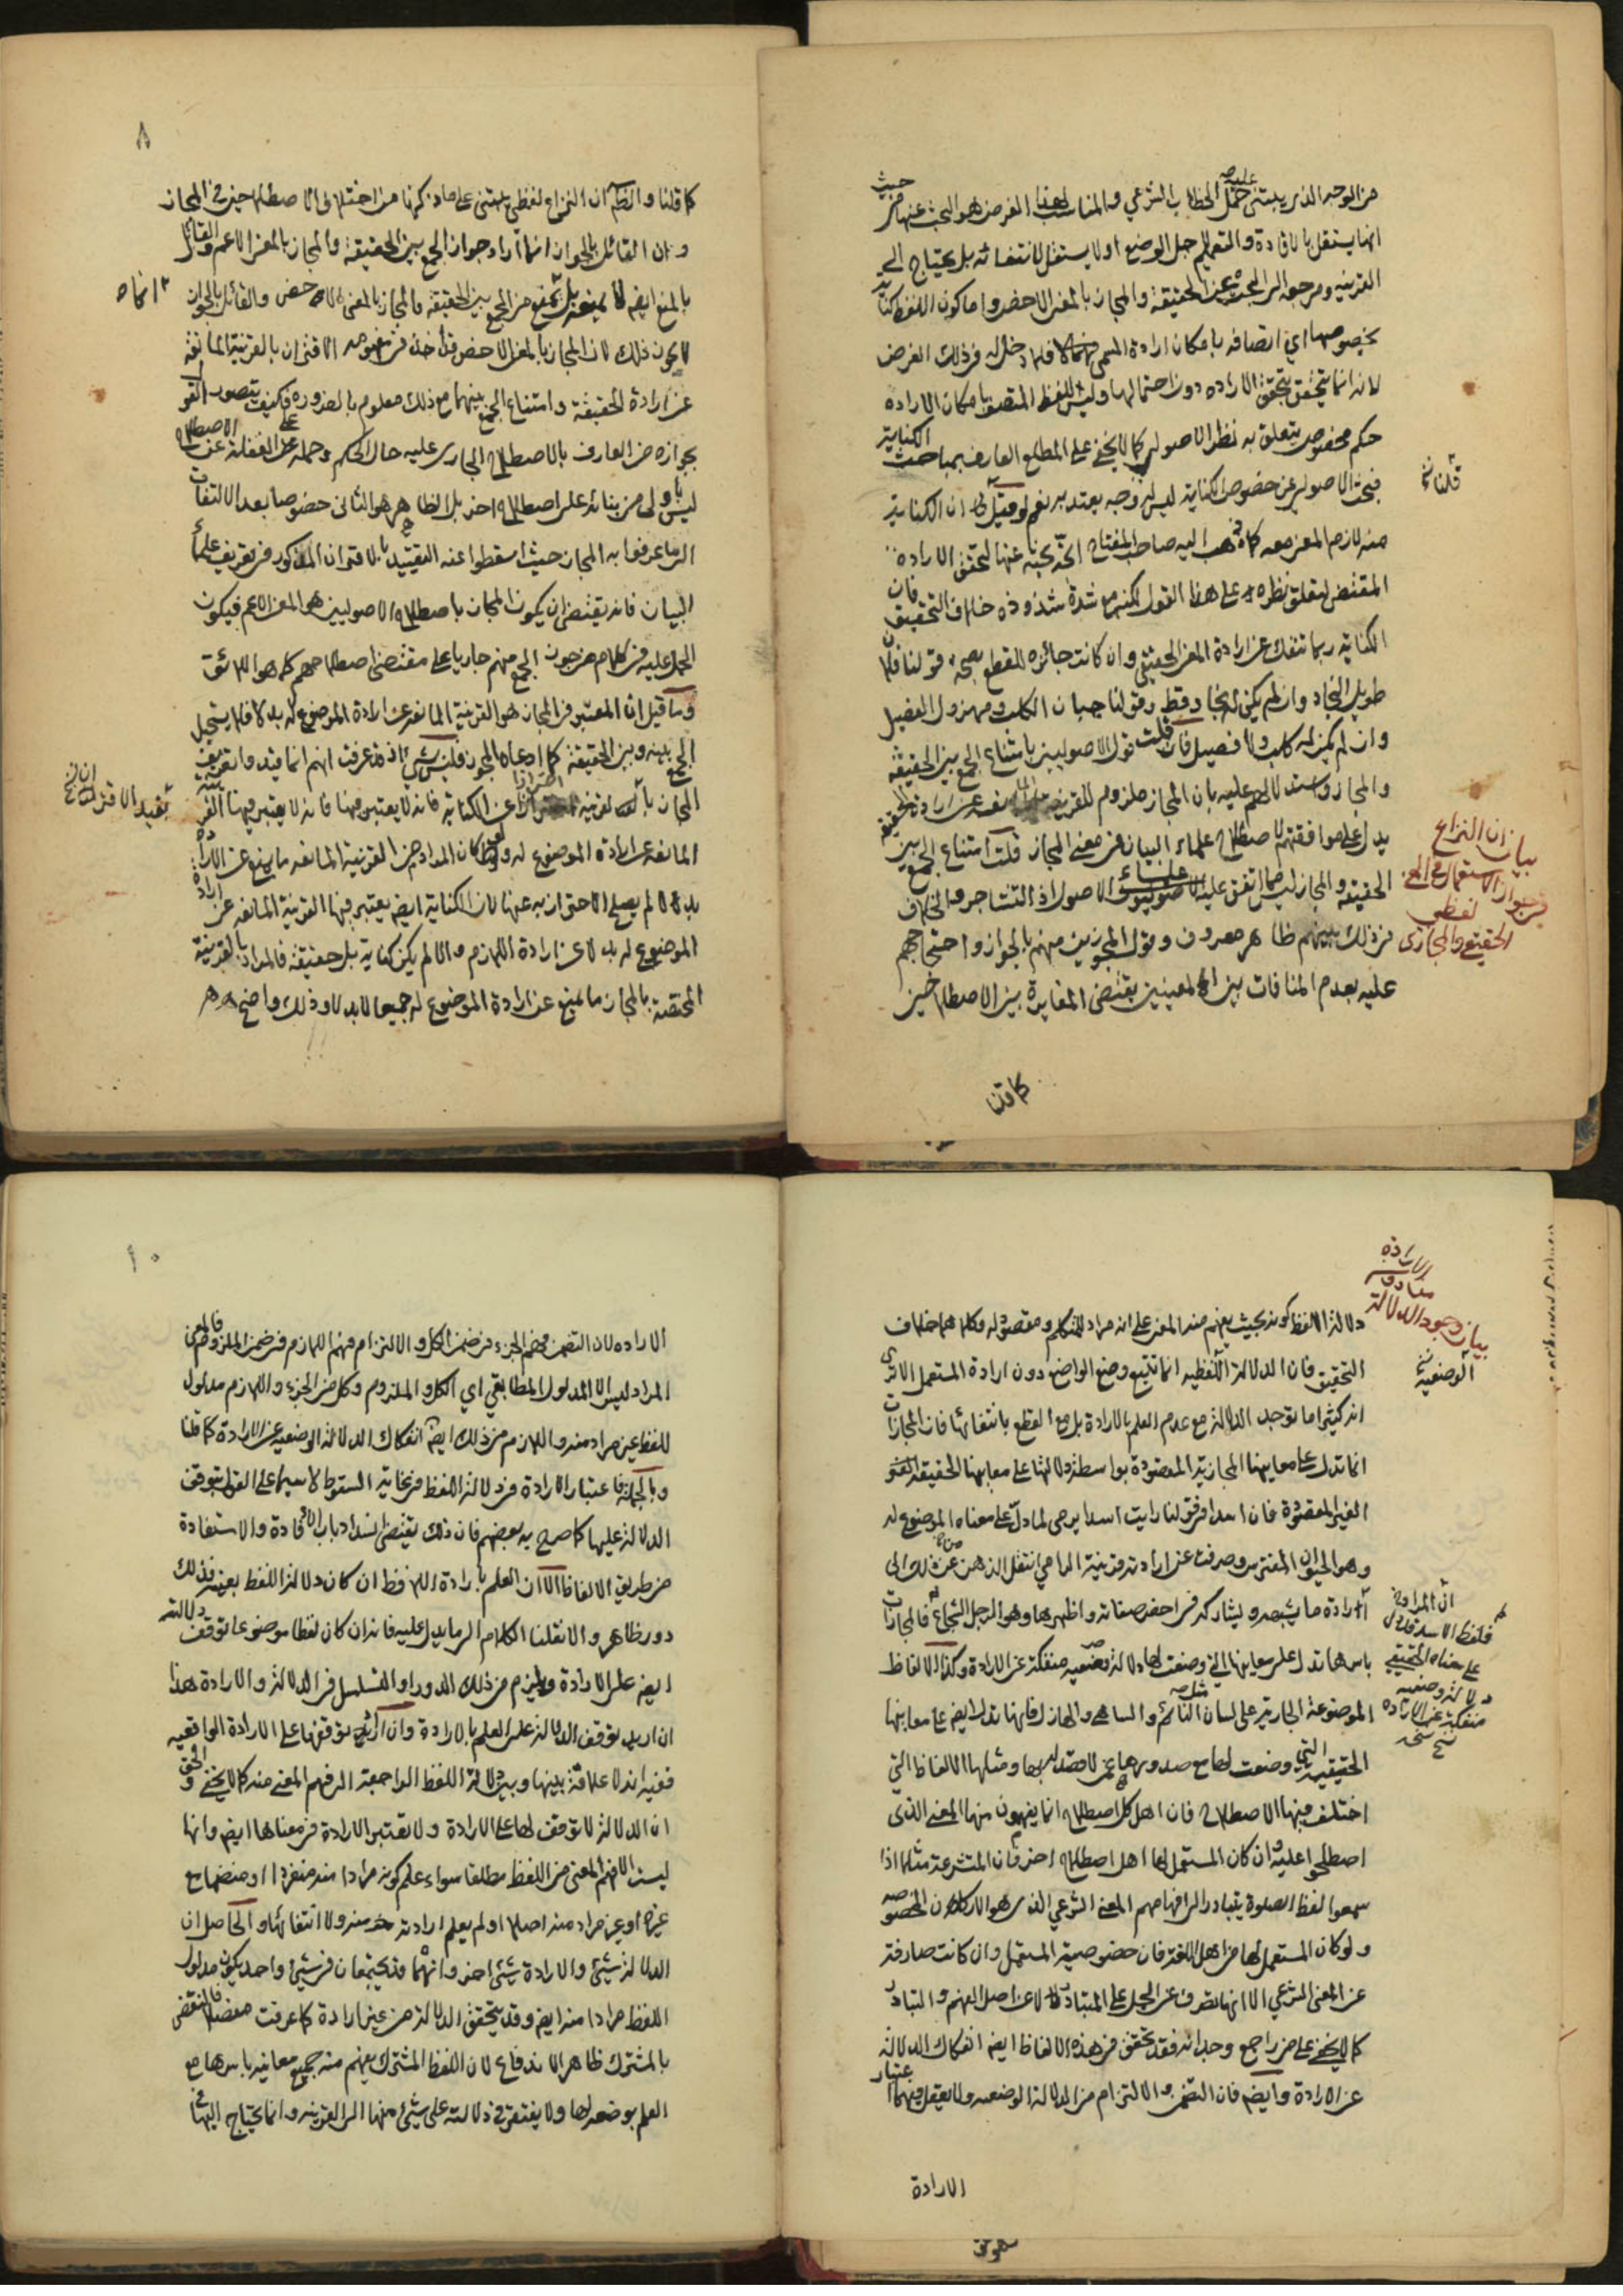 من الوجه الذي يبتنى عليه حمل الخطاب الشرعي والمناسب لهذا الغرض هو البحث عنها من حيث
انها يستقل بالافادة والتعليم جل الوضع اولا يستقل لانتفائه بل يحتاج الى
القرينة ومرجعه الى البحث عن الحقيقة والمجاز بالمعنى الاخص واما كون اللفظ كناية
بخصوصها اي اتصافه بامكان ارادة المسمى فلا دخل له في ذلك الغرض
لانه انما يتحقق بتحقق الارادة دون احتمالها وليس للفظ المتصف بامكان الارادة
حكم مخصوص يتعلق به نظر الاصولي كما لا يخفى على المطلع العارف بمباحث الكناية
فبحث الاصولي عن خصوص الكناية ليس له وجه يعتد به نعم لو قيل ان الكناية
منه لازم المعنى معه كما ذهب اليه صاحب المفتاح اتجه بحثه عنها لتحقق الارادة
المقتضى لتعلق نظره على هذا القول لكنه مع شدة شذوذه خلاف التحقيق فان
الكناية ربما تنفك عن ارادة المعنى الحقيقي وان كانت جائزه للقطع بصحة قولنا فلان
طويل النجاد وان لم يكن له نجاد قط وقولنا جبان الكلب ومهزول الفصيل
وان لم يكن له كلب ولا فصيل فان قلت قول الاصوليين بامتناع الجمع بين الحقيقة
والمجاز واستدلالهم عليه بان المجاز ملزوم للقرينة المانعة عن ارادة الحقيقة
يدل على موافقتهم لاصطلاح علماء البيان في معنى المجاز قلت امتناع الجمع بين
الحقيقة والمجاز ليس مما اتفق عليه علماء الاصول اذ التشاجر والخلاف
في ذلك بينهم ظاهر معروف وقول المجوزين منهم بالجواز واحتجاجهم
عليه بعدم المنافات بين المعنيين يقتضى المغايرة بين الاصطلاحين
كما قلنا
بيان ان النزاع
في جواز الاستعمال في المعنى
الحقيقي والمجازى
لفظي
٨
كما قلنا والظاهر ان النزاع لفظي يبتنى على ما ذكرنا من اختلاف الاصطلاحين في المجاز
وان القائل بالجواز انما اراد جواز الجمع بين الحقيقة والمجاز بالمعنى الاعم والقائل
بالمنع ايضا لا يمنعه بل يمنع من الجمع بين الحقيقة والمجاز بالمعنى الاخص والقائل بالجواز
لا يجوز ذلك لان المجاز بالمعنى الاخص قد اخذ في مفهومه الاقتران بالقرينة المانعة
عن ارادة الحقيقة وامتناع الجمع بينهما مع ذلك معلوم بالضرورة فكيف يتصور القول
بجوازه من العارف بالاصطلاح الجارى عليه حال الحكم وحمله على الغفلة عن الاصطلاح
ليس باولى من بنائه على اصطلاح اخر بل الظاهر هو الثانى خصوصا بعد الالتفات
الى ما عرفوا به المجاز حيث اسقطوا عنه التقييد بالاقتران المذكور في تعريف علماء
البيان فانه يقتضى ان يكون المجاز باصطلاح الاصوليين هو المعنى الاعم فيكون
الحمل عليه في كلام من جوز الجمع منهم جاريا على مقتضى اصطلاحهم كما هو اللائق
وما قيل ان المعتبر في المجاز هو القرينة المانعة عن ارادة الموضوع له بدلا فلا يستحيل
الجمع بينه وبين الحقيقة كما ادعاه المجوز فليس بشيء اذ قد عرفت انهم انما قيدوا تعريف
المجاز بالقرينة احترازا عن الكناية فانه لا يعتبر فيها القرينة
المانعة عن ارادة الموضوع له ولو كان المراد من القرينة المانعة ما يمنع عن الارادة
بدلا لم يصلح الاحتراز به عنها لان الكناية ايضا يعتبر فيها القرينة المانعة عن ارادة
الموضوع له بدلا عن ارادة اللازم والا لم يكن كناية بل حقيقة فالمراد بالقرينة
المختصة بالمجاز ما يمنع عن ارادة الموضوع له جميعا لا بدلا وذلك واضح
دلالة اللفظ كونه بحيث يفهم منه المعنى على انه مراد للمتكلم ومقصود له وكلاهما خلاف
التحقيق فان الدلالة اللفظيه انما تتبع وضع الواضع دون ارادة المستعمل الا ترى
انه كثيرا ما توجد الدلالة مع عدم العلم بالارادة بل مع القطع بانتفائها فان المجازات
انما تدل على معانيها المجازية المقصودة بواسطة دلالتها على معانيها الحقيقة
الغير المقصودة فان اسدا في قولنا رايت اسدا يرمى لما دل على معناه الموضوع له
وهو الحيوان المفترس وصرفت عن ارادته قرينة الرمي انتقل الذهن من ذلك الى
ارادة ما يشبهه ويشاركه في اخص صفاته واظهرها وهو الرجل الشجاع فالمجازات
باسرها تدل على معانيها التي وضعت لها دلالة وضعيه منفكة عن الارادة وكذا الالفاظ
الموضوعة الجارية على لسان النائم والساهي والهازل فانها تدل ايضا على معانيها
الحقيقية التي وضعت لها مع صدورها عمن لا قصد له بها ومثلها الالفاظ التي
اختلف فيها الاصطلاح فان اهل كل اصطلاح انما يفهمون منها المعنى الذى
اصطلحوا عليه وان كان المستعمل لها اهل اصطلاح اخر فان المتشرعة مثلا اذا
سمعوا لفظ الصلوة يتبادر الى افهامهم المعنى الشرعي الذى هو الاركان المخصوصة
ولو كان المستعمل لها من اهل اللغة فان خصوصية المستعمل وان كانت صارفة
عن المعنى الشرعي الا انها تصرف عن الحمل على المتبادر لا عن اصل الفهم والتبادر
كما لا يخفى على من راجع وجدانه فقد تحقق في هذه الالفاظ ايضا انفكاك الدلالة
عن الارادة وايضا فان التضمن والالتزام من الدلالة الوضعيه ولا يعقل فيهما اعتبار
الارادة
بيان وجود الدلالة
الارادة
الوضعية
ان المراد
فلفظ الاسد قد دل
على معناه الحقيقي
دلالة وضعيه
منفكة عن الارادة
١٠
الارادة لان التضمن فهم الجزء في ضمن الكل والالتزام فهم اللازم في ضمن الملزوم والمعنى
المراد ليس الا المدلول المطابقي اي الكل والملزوم وكل من الجزء واللازم مدلول
للفظ غير مراد منه واللازم من ذلك ايضا انفكاك الدلالة الوضعيه عن الارادة كما قلنا
وبالجملة فاعتبار الارادة في دلالة اللفظ في غاية السقوط لا سيما على القول بتوقف
الدلالة عليها كما صرح به بعضهم فان ذلك يقتضى انسداد باب الافادة والاستفادة
من طريق الالفاظ الا ان العلم بارادة اللافظ ان كان دلالة اللفظ بعينه فذلك
دور ظاهر والا نقلنا الكلام الى ما يدل عليه فانه ان كان لفظا موضوعا توقف دلالته
ايضا على الارادة ويلزم من ذلك الدور او التسلسل في الدلالة والارادة هذا
ان اريد توقف الدلالة على العلم بالارادة وان اريد توقفها على الارادة الواقعيه
ففيه انه لا علاقة بينها وبين دلالة اللفظ الراجعة الى فهم المعنى منه كما لا يخفى والحق
ان الدلالة لا توقف لها على الارادة ولا تعتبر الارادة في معناها ايضا وانها
ليست الا فهم المعنى من اللفظ مطلقا سواء علم كونه مرادا منه منفردا او منضما مع
غيره او غير مراد منه اصلا او لم يعلم ارادته منه ولا انتفائها والحاصل ان
الدلالة شيئ والارادة شيئ اخر وانهما قد يجتمعان في شيئ واحد يكون مدلول
اللفظ مرادا منه ايضا وقد يتحقق الدلالة من غير ارادة كما عرفت مفصلا فالنقض
بالمشترك ظاهر الاندفاع لان اللفظ المشترك يفهم منه جميع معانيه باسرها مع
العلم بوضعه لها ولا يفتقر في دلالته على شيئ منها الى القرينه وانما يحتاج اليها في